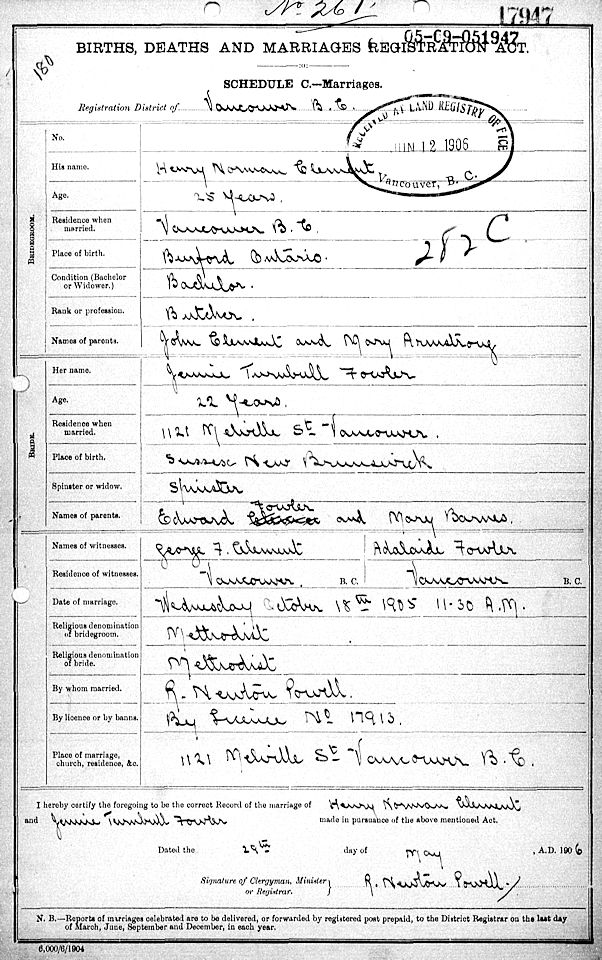 No 261.
17947
05-C9-051947
BIRTHS, DEATHS AND MARRIAGES REGISTRATION ACT.
180
SCHEDULE C.—Marriages.
Registration District of Vancouver B. C.
RECEIVED AT LAND REGISTRY OFFICE
JUN 12 1906
Vancouver, B. C.
282 C
BRIDEGROOM.
No.
His name. Henry Norman Clement
Age. 25 Years.
Residence when married. Vancouver B. C.
Place of birth. Burford Ontario.
Condition (Bachelor or Widower.) Bachelor.
Rank or profession. Butcher.
Names of parents. John Clement and Mary Armstrong
BRIDE.
Her name. Jennie Turnbull Fowler
Age. 22 Years.
Residence when married. 1121 Melville St Vancouver.
Place of birth. Sussex New Brunswick
Spinster or widow. Spinster
Names of parents. Edward Fowler and Mary Barnes.
Names of witnesses. George F. Clement Adalaide Fowler
Residence of witnesses. Vancouver. B. C. Vancouver B. C.
Date of marriage. Wednesday October 18th 1905 11-30 A.M.
Religious denomination of bridegroom. Methodist
Religious denomination of bride. Methodist
By whom married. R. Newton Powell.
By licence or by banns. By Licence No 17913.
Place of marriage, church, residence, &c. 1121 Melville St Vancouver B. C.
I hereby certify the foregoing to be the correct Record of the marriage of Henry Norman Clement
and Jennie Turnbull Fowler made in pursuance of the above mentioned Act.
Dated the 28th day of May, A.D. 1906
Signature of Clergyman, Minister or Registrar. R. Newton Powell.
N. B.—Reports of marriages celebrated are to be delivered, or forwarded by registered post prepaid, to the District Registrar on the last day
of March, June, September and December, in each year.
6,000/6/1904